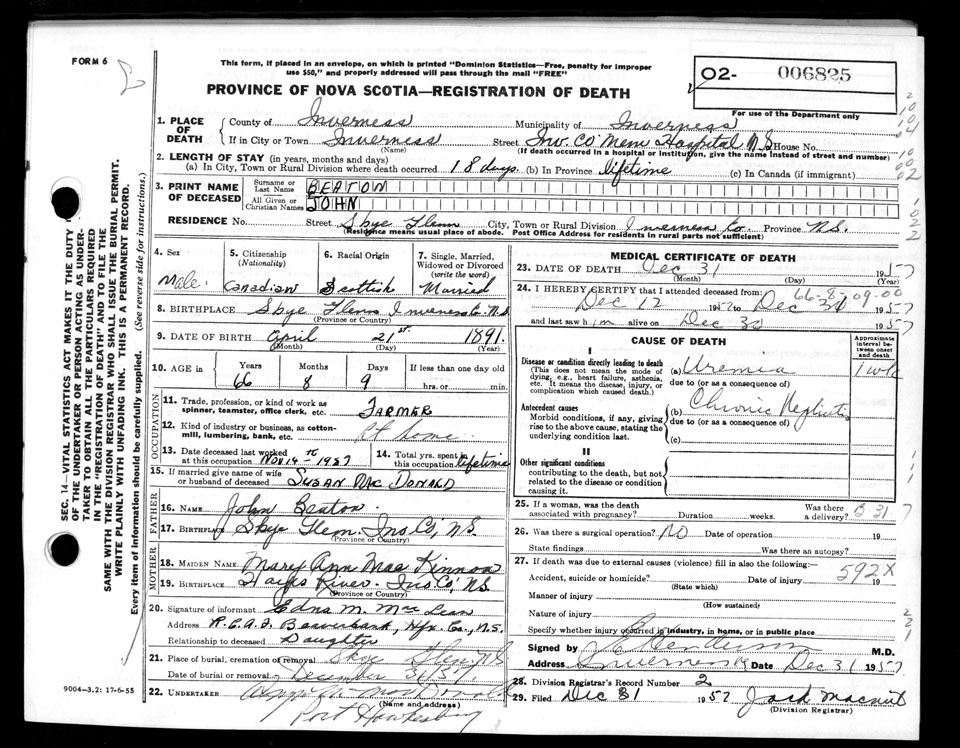 FORM 6
This form, if placed in an envelope, on which is printed "Dominion Statistics—Free, penalty for improper
use $50," and properly addressed will pass through the mail "FREE"
PROVINCE OF NOVA SCOTIA—REGISTRATION OF DEATH
02- 006825
For use of the Department only
1. PLACE OF DEATH
County of Inverness Municipality of Inverness
If in City or Town Inverness Street Inv. Co Mem Hospital N.S. House No.
(Name) (If death occurred in a hospital or institution, give the name instead of street and number)
2. LENGTH OF STAY (in years, months and days)
(a) In City, Town or Rural Division where death occurred 18 days (b) In Province lifetime (c) In Canada (if immigrant)
3. PRINT NAME OF DECEASED
Surname or Last Name BEATON
All Given or Christian Names JOHN
RESIDENCE No. Street Skye Glenn City, Town or Rural Division Inverness Co. Province N.S.
(Residence means usual place of abode. Post Office Address for residents in rural parts not sufficient)
4. Sex Male
5. Citizenship (Nationality) Canadian
6. Racial Origin Scottish
7. Single, Married, Widowed or Divorced (write the word) Married
8. BIRTHPLACE Skye Glenn Inverness Co. N.S.
(Province or Country)
9. DATE OF BIRTH April 21st. 1891.
(Month) (Day) (Year)
10. AGE in Years Months Days If less than one day old
66 8 9 hrs. or min.
OCCUPATION
11. Trade, profession, or kind of work as spinner, teamster, office clerk, etc. FARMER
12. Kind of industry or business, as cotton-mill, lumbering, bank, etc. At home
13. Date deceased last worked at this occupation Nov 14th - 1957
14. Total yrs. spent in this occupation lifetime
15. If married give name of wife or husband of deceased SUSAN MacDONALD
FATHER
16. NAME John Beaton
17. BIRTHPLACE Skye Glen. Inv. Co, N.S.
(Province or Country)
MOTHER
18. MAIDEN NAME Mary Ann MacKinnon
19. BIRTHPLACE Hayes River. Inv Co, N.S.
(Province or Country)
20. Signature of informant Edna M. MacLean
Address R.C.A.F. Beaverbank, Hfx. Co., N.S.
Relationship to deceased Daughter
21. Place of burial, cremation or removal Skye Glen NS
Date of burial or removal December
22. UNDERTAKER MacDonald
(Name and address)
Port Hawkesbury
9004-3.2: 17-6-55
SEC. 14—VITAL STATISTICS ACT MAKES IT THE DUTY
OF THE UNDERTAKER OR PERSON ACTING AS UNDER-
TAKER TO OBTAIN ALL THE PARTICULARS REQUIRED
IN THE "REGISTRATION OF DEATH" AND TO FILE THE
SAME WITH THE DIVISION REGISTRAR WHO SHALL ISSUE THE BURIAL PERMIT.
WRITE PLAINLY WITH UNFADING INK. THIS IS A PERMANENT RECORD.
Every item of information should be carefully supplied. (See reverse side for instructions.)
MEDICAL CERTIFICATE OF DEATH
23. DATE OF DEATH Dec 31 1957
24. I HEREBY CERTIFY that I attended deceased from:
66-8-09-00
Dec 12 1957 to Dec 31 1957
and last saw him alive on Dec 30 1957
CAUSE OF DEATH
Approximate interval between onset and death
I
Disease or condition directly leading to death
(This does not mean the mode of dying, e.g., heart failure, asthenia, etc. It means the disease, injury, or complication which caused death.)
(a) Uremia 1 wk
due to (or as a consequence of)
Antecedent causes
Morbid conditions, if any, giving rise to the above cause, stating the underlying condition last.
(b) Chronic Nephritis
due to (or as a consequence of)
(c)
II
Other significant conditions
contributing to the death, but not related to the disease or condition causing it.
25. If a woman, was the death associated with pregnancy? Duration weeks. Was there a delivery? B 31
26. Was there a surgical operation? NO Date of operation 19
State findings Was there an autopsy?
27. If death was due to external causes (violence) fill in also the following:—
592X
Accident, suicide or homicide? Date of injury 19
(State which)
Manner of injury
(How sustained)
Nature of injury
Specify whether injury occurred in industry, in home, or in public place
Signed by
Address Inverness Date Dec 31 1957
28. Division Registrar's Record Number 2
29. Filed Dec 31 1957 Jack
(Division Registrar)